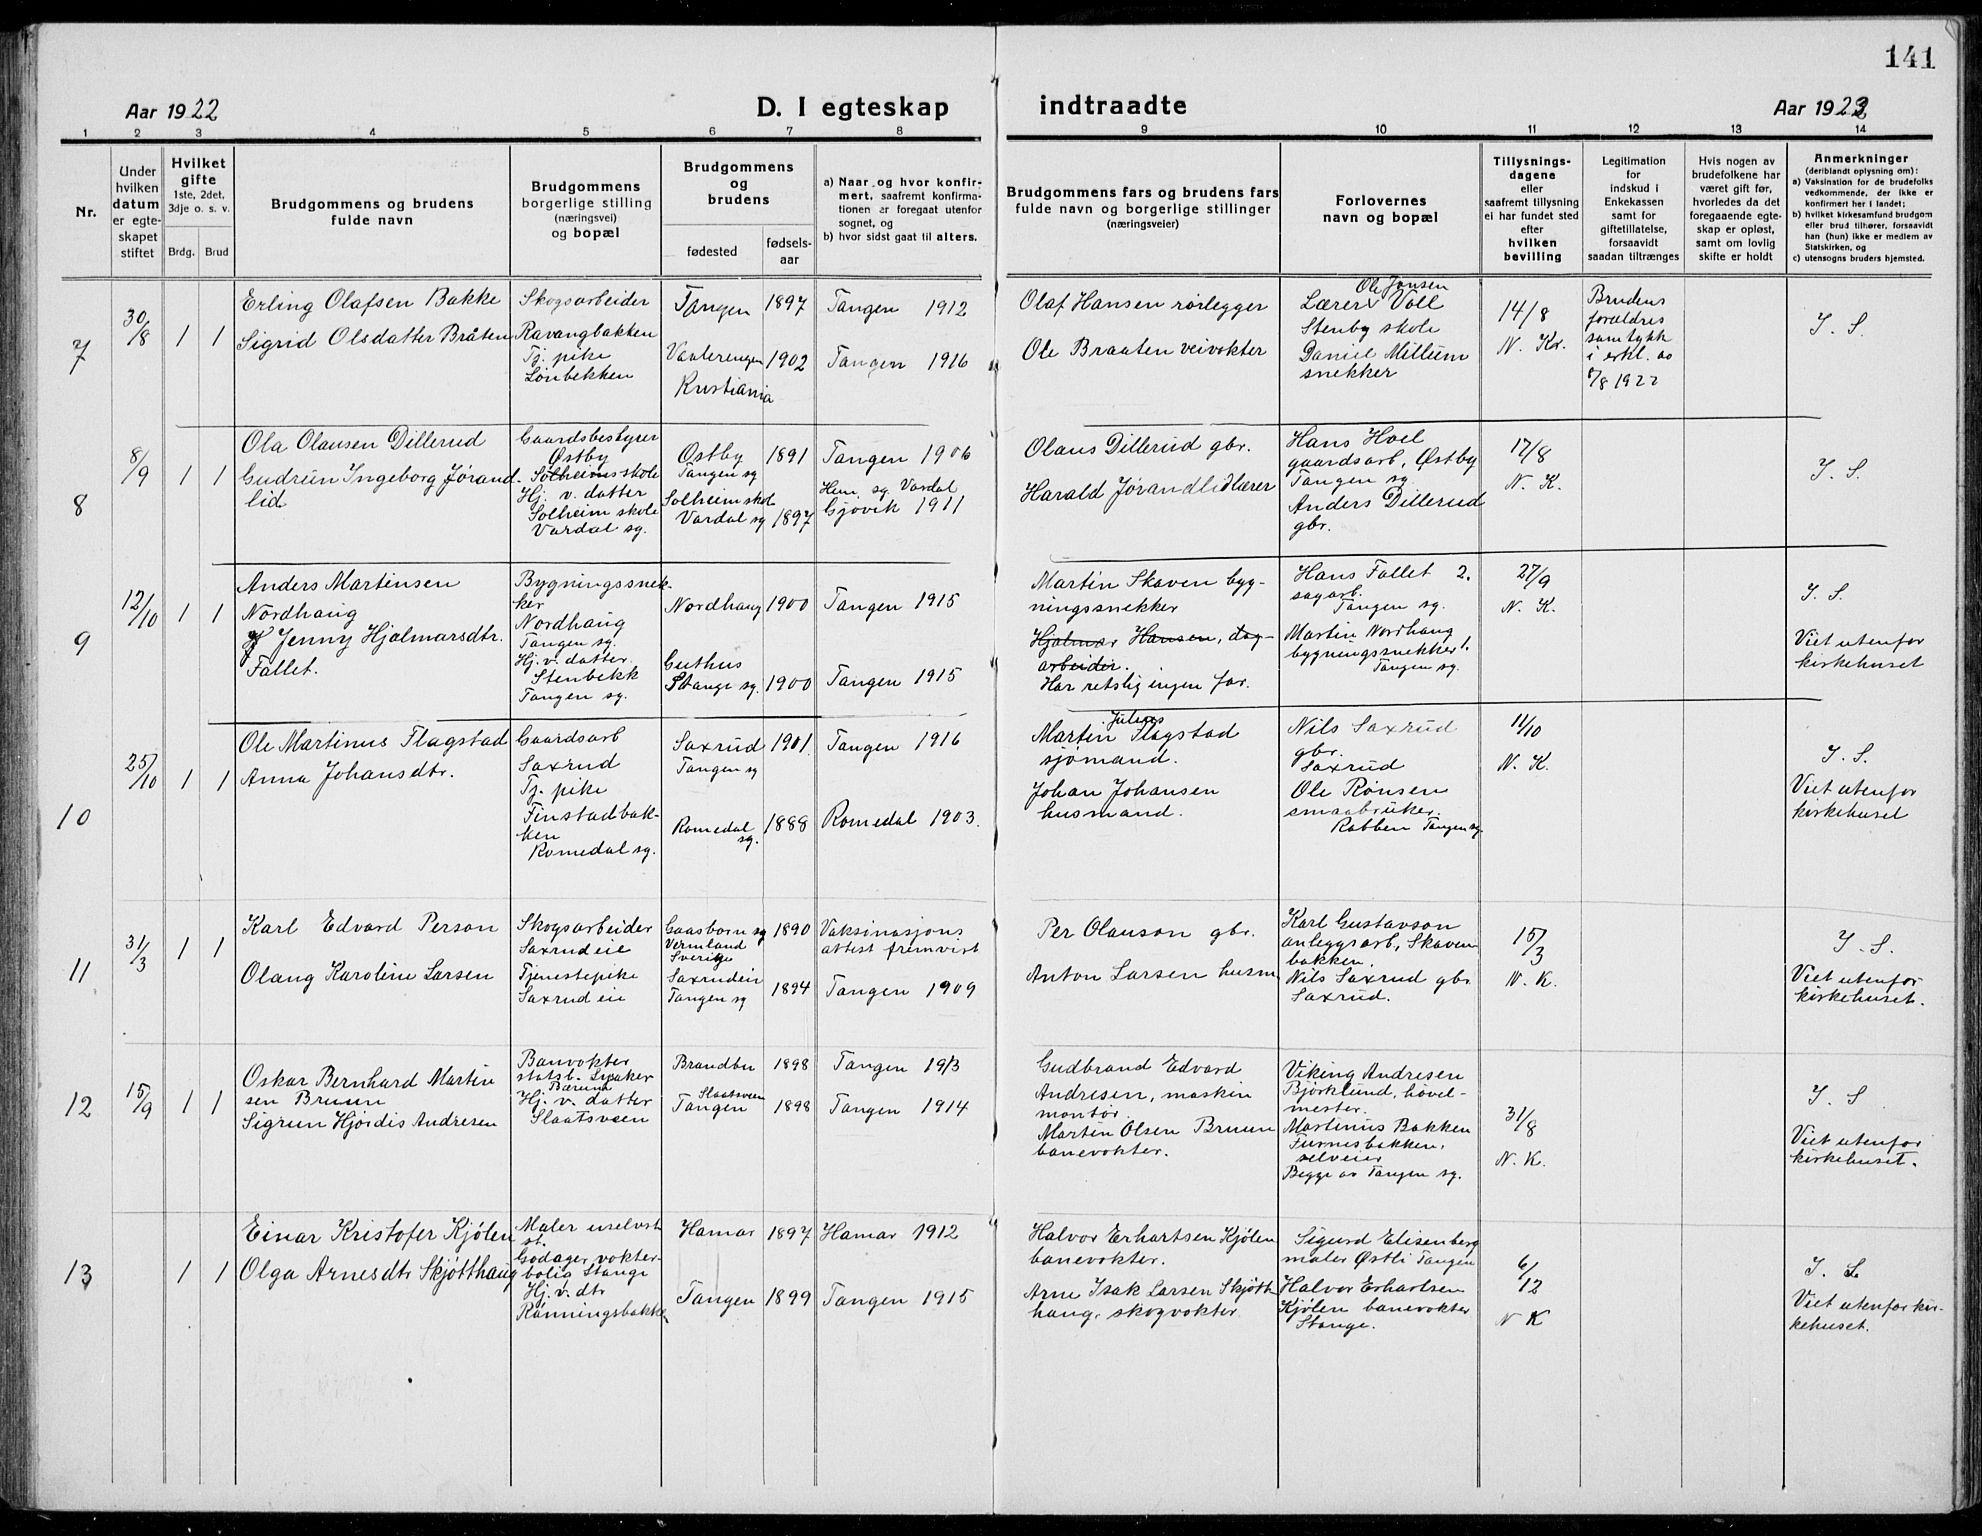 141
Aar 1922
D. I egteskap
indtraadte
Aar 1923
1 2 3 4 5 6 7 8 9 10 11 12 13 14
Nr.
Under hvilken datum er egteskapet stiftet
Hvilket gifte
1ste, 2det, 3dje o. s. v.
Brdg. Brud
Brudgommens og brudens
fulde navn
Brudgommens
borgerlige stilling
(næringsvei)
og bopæl
Brudgommens
og
brudens
fødested
fødsels-
aar
a) Naar og hvor konfir-
mert, saafremt konfirma-
tionen er foregaat utenfor
sognet, og
b) hvor sidst gaat til alters.
Brudgommens fars og brudens fars
fulde navn og borgerlige stillinger
(næringsveier)
Forlovernes
navn og bopæl
Tillysnings-
dagene
eller
saafremt tillysning
ei har fundet sted
efter
hvilken
bevilling
Legitimation
for
indskud i
Enkekassen
samt for
giftetillatelse,
forsaavidt
saadan tiltrænges
Hvis nogen av
brudefolkene har
været gift før,
hvorledes da det
foregaaende egte-
skap er opløst,
samt om lovlig
skifte er holdt
Anmerkninger
(deriblandt oplysning om):
a) Vaksination for de brudefolks
vedkommende, der ikke er
konfirmert her i landet;
b) hvilket kirkesamfund brudgom
eller brud tilhører, forsaavidt
han (hun) ikke er medlem av
Statskirken, og
c) utensogns bruders hjemsted.
7
30/8
1 1
Erling Olafsen Bakke
Sigrid Olsdatter Bråten
Skogsarbeider
Ravangbakken
Tj. pike
Lönbekken
Tangen 1897
Vaalerengen 1902
Kristiania
Tangen 1912
Tangen 1916
Olaf Hansen rørlegger
Ole Braaten veivokter
Ole Jonsen
Lærer Voll
Stenby skole
Daniel Millum
snekker
14/8
N. K.
Brudens
forældres
samtykk
i erkl. av
8/8 1922
I. S.
8
8/9
1 1
Ola Olausen Dillerud
Gudrun Ingeborg Jørand-
lid
Gaardsbestyrer
Østby
Solheim skole
Hj. v. datter
Solheim skole
Vardal sg.
Østby 1891
Tangen sg
Solheim skol
Vardal sg 1897
Tangen 1906
Hem. sg. Vardal
Gjøvik 1911
Olaus Dillerud gbr.
Harald Jørandlid lærer
Hans Hoel
gaardsarb, Østby
Tangen sg
Anders Dillerud
gbr.
17/8
N. K.
I. S.
9
12/10
1 1
Anders Martinsen
Nordhaug
Jenny Hjalmarsdtr.
Fallet.
Bygningssnek-
ker
Nordhaug
Tangen sg.
Hj. v. datter
Stenbekk
Tangen sg.
Nordhaug 1900
Guthus
Stange sg. 1900
Tangen 1915
Tangen 1915
Martin Skaven byg-
ningssnekker
Hjalmar Hansen, dag-
arbeider.
Har retslig ingen far.
Hans Fallet 2.
sagarb.
Tangen sg.
Martin Nordhaug
bygningssnekker 1.
Tangen sg.
27/9
N. K.
I. S.
Viet utenfor
kirkehuset
10
25/10
1 1
Ole Martinus Flagstad
Anna Johansdtr.
Gaardsarb
Saxrud
Tj. pike
Finstadbak-
ken
Romedal sg.
Saxrud 1901.
Tangen sg
Romedal 1888
sg.
Tangen 1916
Romedal 1903.
Julius
Martin Flagstad
sjømand.
Johan Johansen
husmand.
Nils Saxrud
gbr.
Saxrud
Ole Rønsen
smaabruker.
Rabben Tangen sg.
11/10
N. K.
I. S.
Viet utenfor
kirkehuset
11
31/3
1 1
Karl Edvard Person
Olang Karoline Larsen
Skogsarbeider
Saxrudeie
Tjenestepike
Saxrudeie
Gaasborn sg 1890
Vermland
Sverige
Saxrudeie 1894
Tangen sg
Vaksinasjons
attest fremvist
Tangen 1909
Per Olauson gbr.
Anton Larsen husm.
Karl Gustavson
anleggsarb, Skaven-
bakken.
Nils Saxrud gbr
Saxrud.
15/3
N. K.
I. S.
Viet utenfor
kirkehuset.
12
15/9
1 1
Oskar Bernhard Martin
sen Bruun
Sigrun Hjørdis Andresen
Banvokter
statsb. Lysaker
Bærum
Hj. v. datter
Slaatsveen
Brandbu 1898
Slaatsveen
Tangen 1898
Tangen 1913
Tangen 1914
Gudbrand Edvard
Andresen, maskin
montør.
Martin Olsen Bruun
banevokter.
Viking Andresen
Björklund, høvel-
mester.
Martinus Bakken
Furnesbakken,
selveier
Begge av Tangen sg.
31/8
N. K.
I. S
Viet utenfor
kirkehuset.
13
1 1
Einar Kristofer Kjølen
Olga Arnesdtr Skjøtthaug
Maler uselvst
st.
Godager vokter-
bolig Stange
Hj. v. dtr
Rønningsbakke
Hamar 1897
Tangen 1899
Hamar 1912
Tangen 1915
Halvor Erhartsen Kjølen
banevokter.
Arne Isak Larsen Skjøtt
haug, skogvokter
Sigurd Elisenberg
maler Østli Tangen
Halvor Erhartsen
Kjølen banevokter
Stange.
6/12
N K
I. S.
Viet utenfor kir-
kehuset.